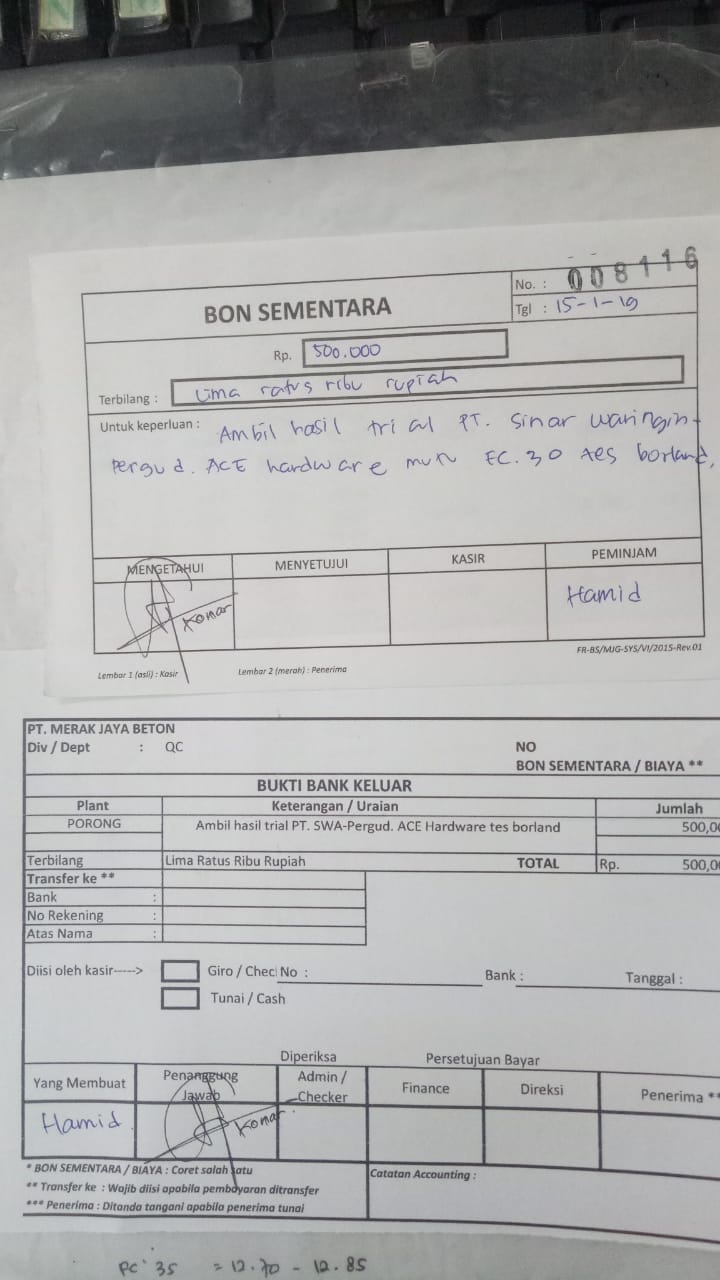 No. : 008116
BON SEMENTARA
Tgl : 15-1-19
Rp. 500.000
Terbilang : Lima ratus ribu rupiah
Untuk keperluan : Ambil hasil trial PT. Sinar waringin-
Pergud. ACE hardware mutu FC.30 tes borland,
MENGETAHUI MENYETUJUI KASIR PEMINJAM
Komar Hamid
FR-BS/MJG-SYS/VI/2015-Rev.01
Lembar 1 (asli) : Kasir Lembar 2 (merah) : Penerima
PT. MERAK JAYA BETON
Div / Dept : QC NO
BON SEMENTARA / BIAYA **
BUKTI BANK KELUAR
Plant Keterangan / Uraian Jumlah
PORONG Ambil hasil trial PT. SWA-Pergud. ACE Hardware tes borland 500,00
Terbilang Lima Ratus Ribu Rupiah TOTAL Rp. 500,00
Transfer ke **
Bank :
No Rekening :
Atas Nama :
Diisi oleh kasir-----> Giro / Chec No : Bank : Tanggal :
Tunai / Cash
Diperiksa Persetujuan Bayar
Yang Membuat Penanggung Jawab Admin / Checker Finance Direksi Penerima **
Hamid Komar
* BON SEMENTARA / BIAYA : Coret salah satu
Catatan Accounting :
** Transfer ke : Wajib diisi apabila pembayaran ditransfer
*** Penerima : Ditanda tangani apabila penerima tunai
FC' 35 = 12.70 - 12.85